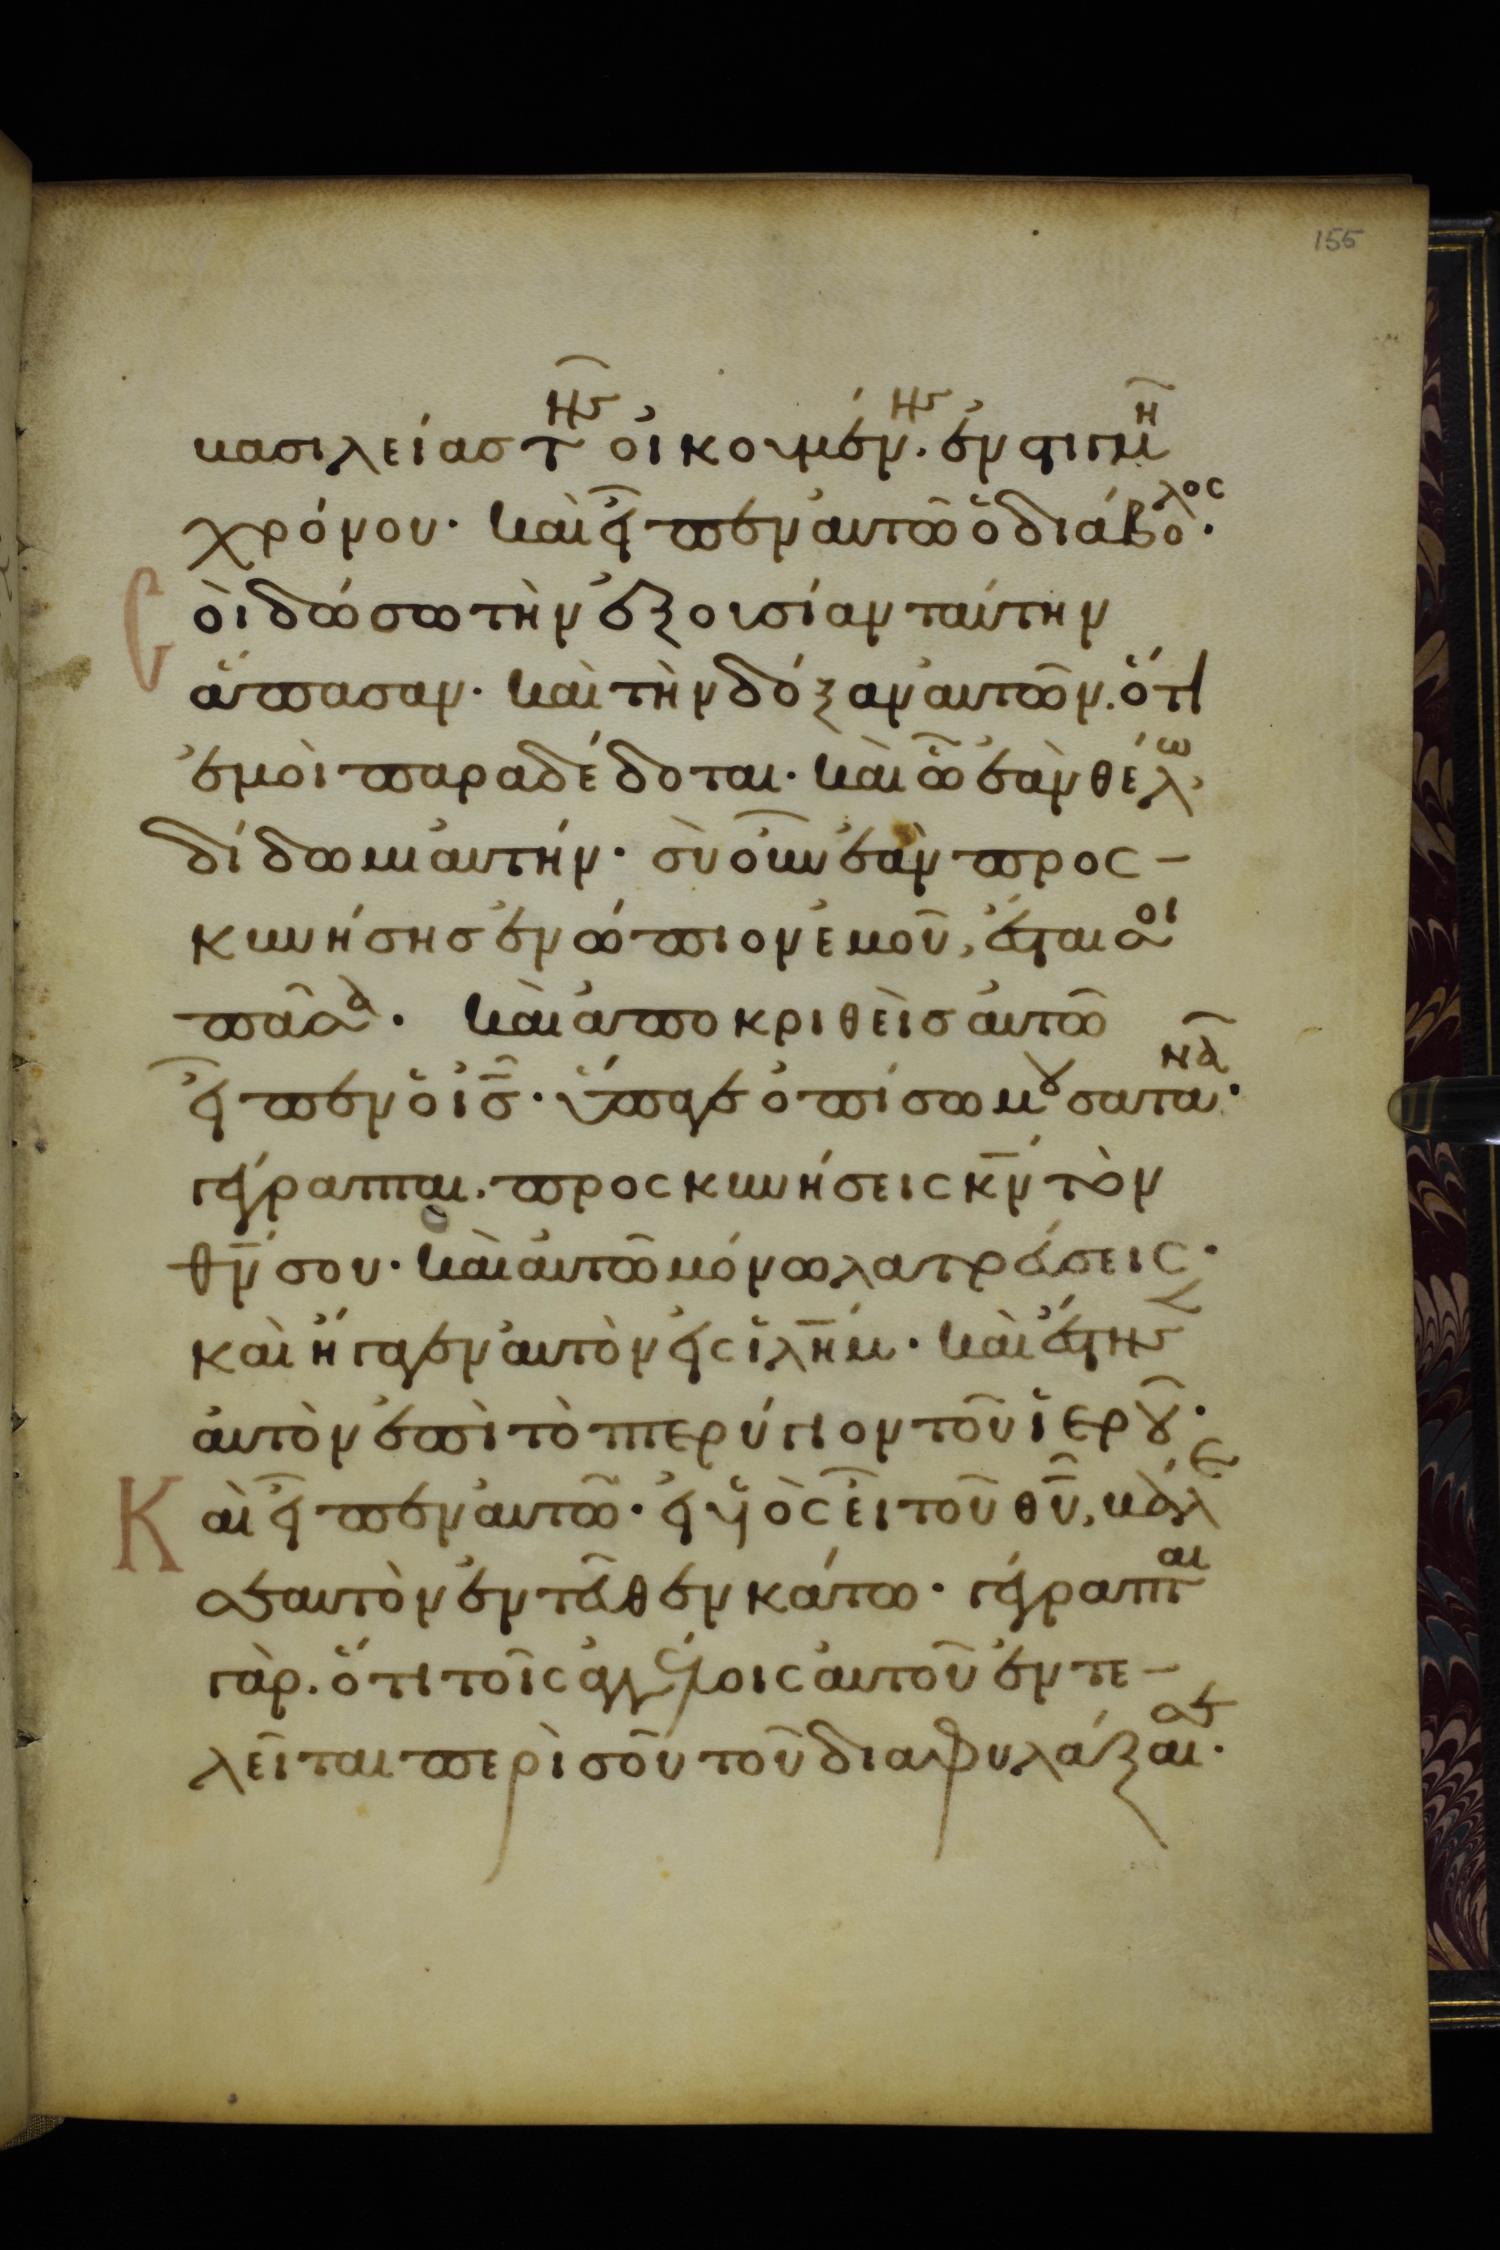 155
βασιλείας τῆς οἰκουμένης· ἐν στιγμῆ
χρόνου· καὶ εἶπεν αὐτῶ ὁ διάβολος·
Σοὶ δώσω τὴν ἐξουσίαν ταύτην
ἅπασαν· καὶ τὴν δόξαν αὐτῶν. ὅτι
ἐμοὶ παραδέδοται· καὶ ὧ ἐὰν θέλω,
δίδωμι αὐτήν· σὺ οὖν ἐὰν προσ-
κυνήσης ἐνώπιον ἐμοῦ, ἔσται σοι
πᾶσα· καὶ ἀποκριθεὶς αὐτῶ
εἶπεν ὁ ι̅ς̅· ὕπαγε ὀπίσω μου σατανᾶ·
γέγραπται. προσκυνήσεις κ̅ν̅ τὸν
θ̅ν̅ σου· καὶ αὐτῶ μόνω λατρεύσεις·
καὶ ἤγαγεν αὐτὸν εἰς ἱ̅λ̅η̅μ̅· καὶ ἔστησεν
αὐτὸν ἐπὶ τὸ πτερύγιον τοῦ ἱεροῦ·
Καὶ εἶπεν αὐτῶ· εἰ υἱὸς εἶ τοῦ θ̅υ̅, βάλε
σεαυτὸν ἐντεῦθεν κάτω· γέγραπται
γὰρ. ὅτι τοῖς ἀγγέλοις αὐτοῦ ἐντε-
λεῖται περὶ σοῦ τοῦ διαφυλάξαι σε·